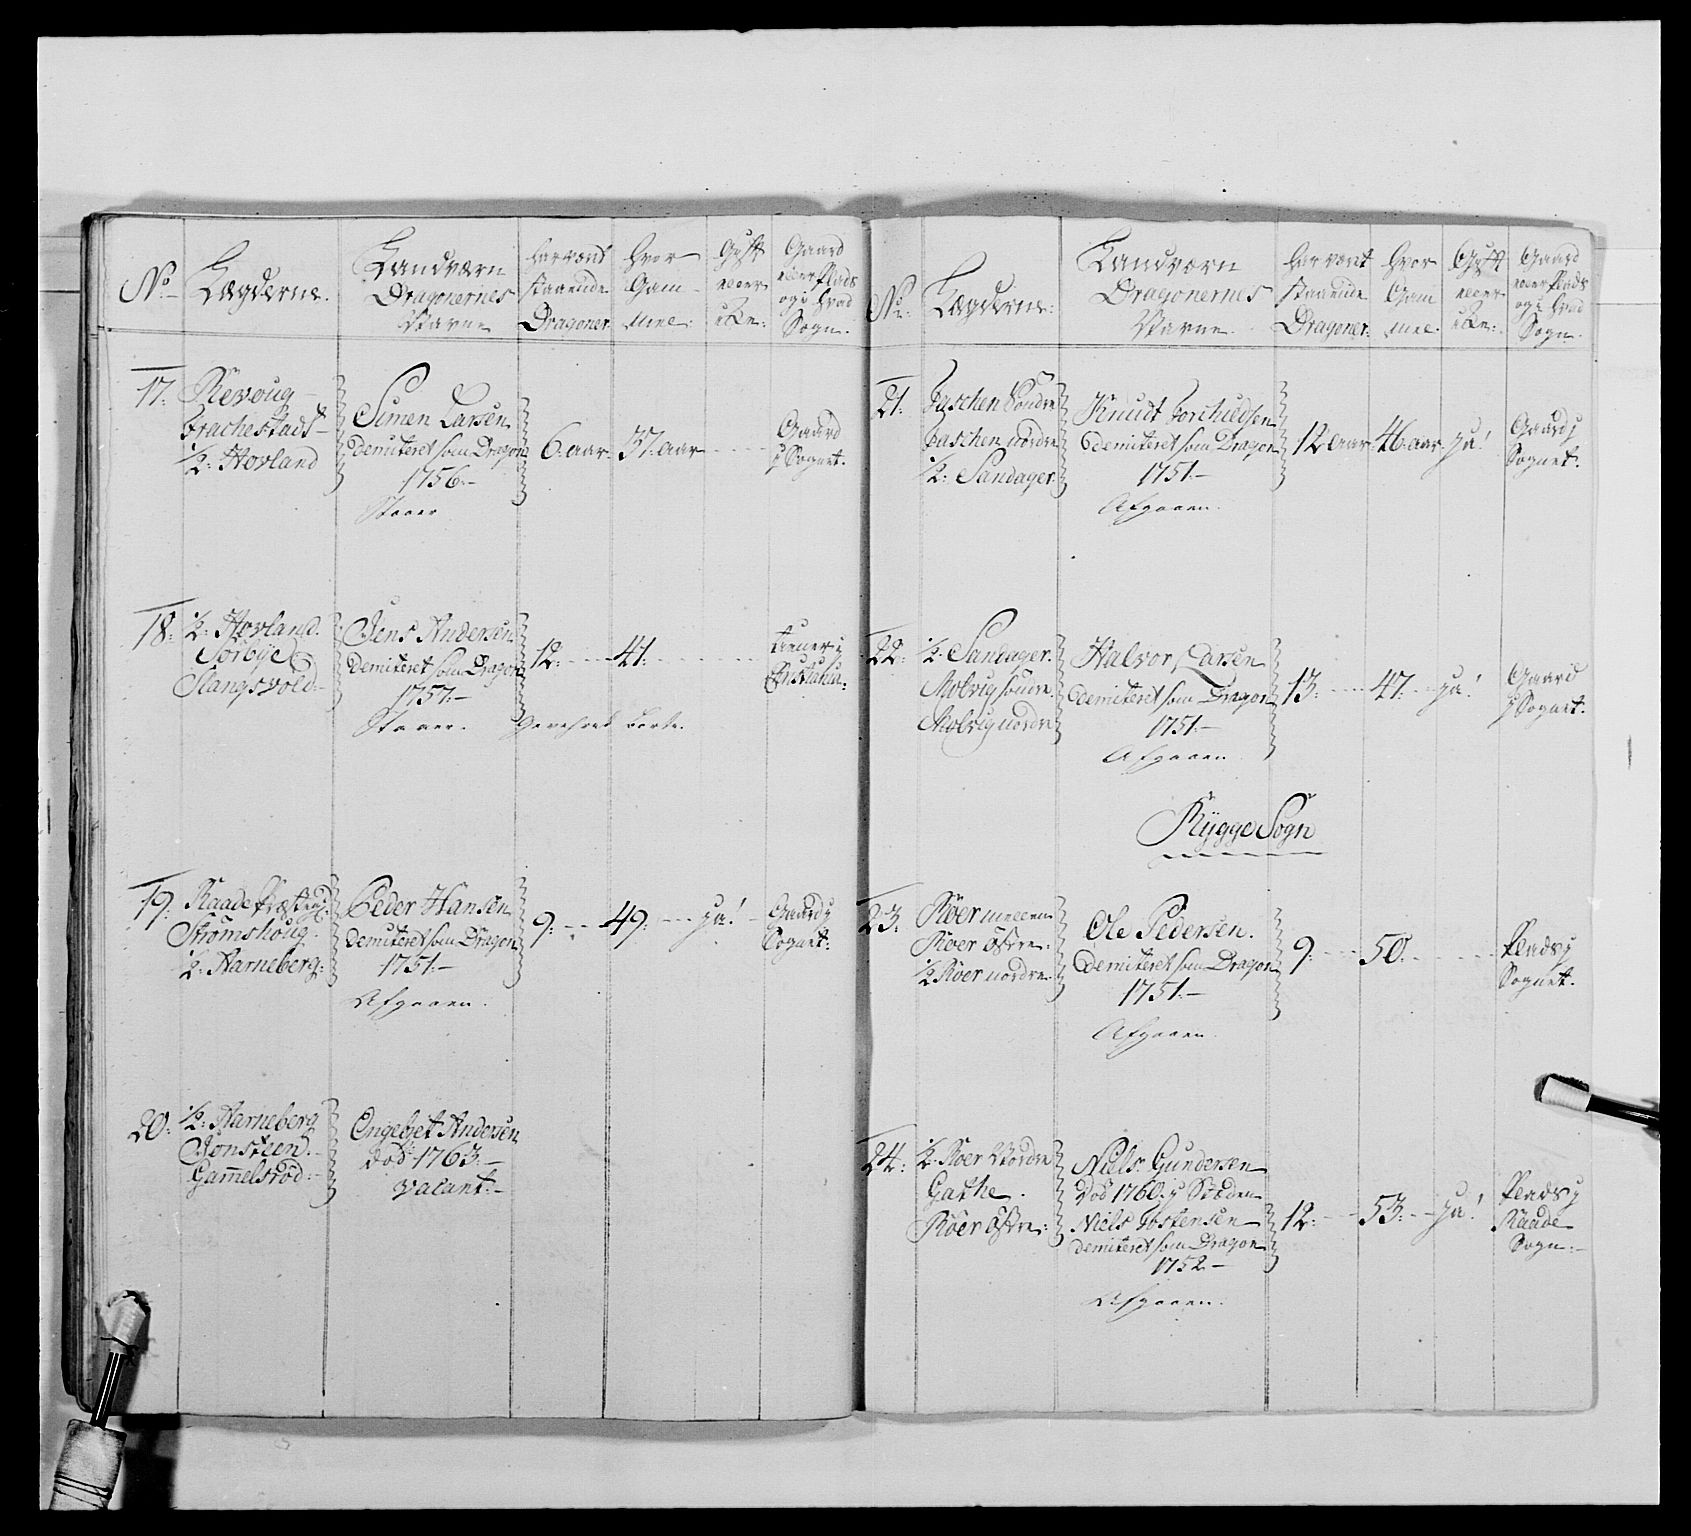 No
Lægderne.
Landværn
Dragonernes
Navne
har været
staaende
Dragoner.
Hvor
Gam-
mel:
Gift
eller
ukn:
Gaard
eller Plads
og i hvad
Sogn.
17:
Revoug
Frachestad
½: Hovland
Simen Larsen
Demiteret som Dragon
1756.-
Staaer
6. aar.
37. aar
Gaard
i Sognet.
18:
½: Hovland.
Sørbye
Slangsvold-
Jens Andersen
Demiteret som Dragon
1757.-
Staaer.
12:
41:
tiener i
Christiania.
19:
Raade Præstegd:
Strømshoug.
½: Harneberg:
Peder Hansen
Demiteret som Dragon
1751.-
Afgaaen.
9:
49:
ja!
Gaard i
Sognet:
20:
½: Harneberg
Jonsteen.
Gamelsrød:
Engebret Andersen
død 1763.-
vacant.-
No:
Lægderne:
Landværn
Dragonernes
Navne
har været
staaende
Dragoner:
Hvor
Gam
mel:
Gift
eller
ukn:
Gaard
eller Plads
og i hvad
Sogn.
21:
Taschen Søndre
Taschen nordre
½: Sandager
Knudt Torchildsen
demiteret som Dragon
1751.-
Afgaaen.
12 Aar.
46. aar.
ja!
Gaard i
Sognet.
22:
½. Sandager.
Molvig søndre
Molvig nordre
Halvor Larsen
demiteret som Dragon
1751.-
Afgaaen
13:
47:
ja!
Gaard
i Sognet.
Rygge Sogn
23:
Røer mellem
Røer østre:
½ Røer nordre.
Ole Pedersen.
demiteret som Dragon
1751.-
Afgaaen.
9:
50.
Plads i
Sognet.
24:
½. Røer Nordre
Gathe.
Røer østre:
Niels Gundersen
død 1760. i Støden
Niels Tostensen
demiteret som Dragon
1752.-
Afgaaen.
12:
53:
ja!
Plads i
Raade
Sogn:-